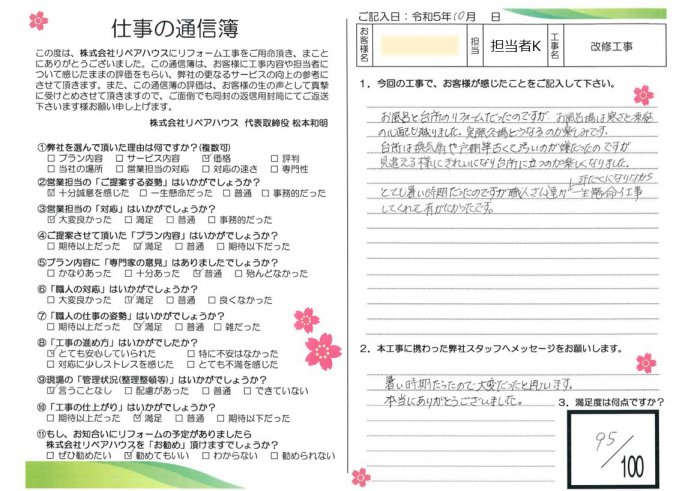 仕事の通信簿
この度は、株式会社リペアハウスにリフォーム工事をご用命頂き、まこと
にありがとうございました。この通信簿は、お客様に工事内容や担当者に
ついて感じたままの評価をもらい、弊社の更なるサービスの向上の参考に
させて頂きます。また、この通信簿の評価は、お客様の生の声として真摯
に受けとめさせて頂きますので、ご面倒でも同封の返信用封筒にてご返送
下さいます様お願い申し上げます。
株式会社リペアハウス 代表取締役 松本和明
①弊社を選んで頂いた理由は何ですか?(複数可)
□プラン内容 □サービス内容 ☑価格 □評判
□当社の場所 □営業担当の対応 □対応の速さ □専門性
②営業担当の「ご提案する姿勢」はいかがでしょうか?
☑十分誠意を感じた □一生懸命だった □普通 □事務的だった
③営業担当の「対応」はいかがでしょうか?
☑大変良かった □満足 □普通 □事務的だった
④ご提案させて頂いた「プラン内容」はいかがでしょうか?
□期待以上だった ☑満足 □普通 □期待以下だった
⑤プラン内容に「専門家の意見」はありましたでしょうか?
□かなりあった □十分あった ☑普通 □殆んどなかった
⑥「職人の対応」はいかがでしょうか?
□大変良かった ☑満足 □普通 □良くなかった
⑦「職人の仕事の姿勢」はいかがでしょうか?
□期待以上だった ☑満足 □普通 □雑だった
⑧「工事の進め方」はいかがでしたか?
☑とても安心していられた □特に不安はなかった
□対応に少しストレスを感じた □とても不満を感じた
⑨現場の「管理状況(整理整頓等)」はいかがでしょうか?
☑言うことなし □配慮があった □普通 □できていない
⑩「工事の仕上がり」はいかがでしょうか?
□期待以上だった ☑満足 □普通 □期待以下だった
⑪もし、お知合いにリフォームの予定がありましたら
株式会社リペアハウスを「お勧め」頂けますでしょうか?
□ぜひ勧めたい ☑勧めてもいい □わからない □勧められない
ご記入日:令和5年10月 日
お客様名
担当
担当者K
工事名
改修工事
1.今回の工事で、お客様が感じたことをご記入して下さい。
お風呂と台所のリフォームだったのですが、お風呂場は寒さと
の心配も減りました。実際冬場どうなるのか楽しみです。
台所は換気扇や戸棚等古くて汚いのが嫌だったのですが
見違える様にきれいになり台所に立つのが楽しくなりました。
とても暑い時期だったのですが職人さん達が汗だくになりながら一生懸命工事
してくれて有がたかったです。
2.本工事に携わった弊社スタッフへメッセージをお願いします。
暑い時期だったので大変だったと思います。
本当にありがとうございました。
3.満足度は何点ですか?
95/100